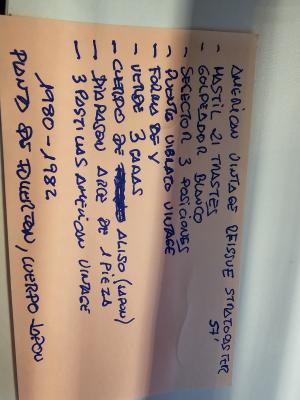 AMERICAN VINTAGE REISSUE STRATOCASTER 57'
- MASTIL 21 TRASTES
- GOLPEADOR BLANCO
- SELECTOR 3 POSICIONES
- PUENTE VIBRATO VINTAGE
- FORMA DE V
- VERDE 3 CAPAS
- CUERPO DE ALISO (JAPON)
- DIAPASON ARCE DE 1 PIEZA
- 3 PASTILLAS AMERICAN VINTAGE
1980-1982
PLANTA DE FULLERTON, CUERPO JAPON